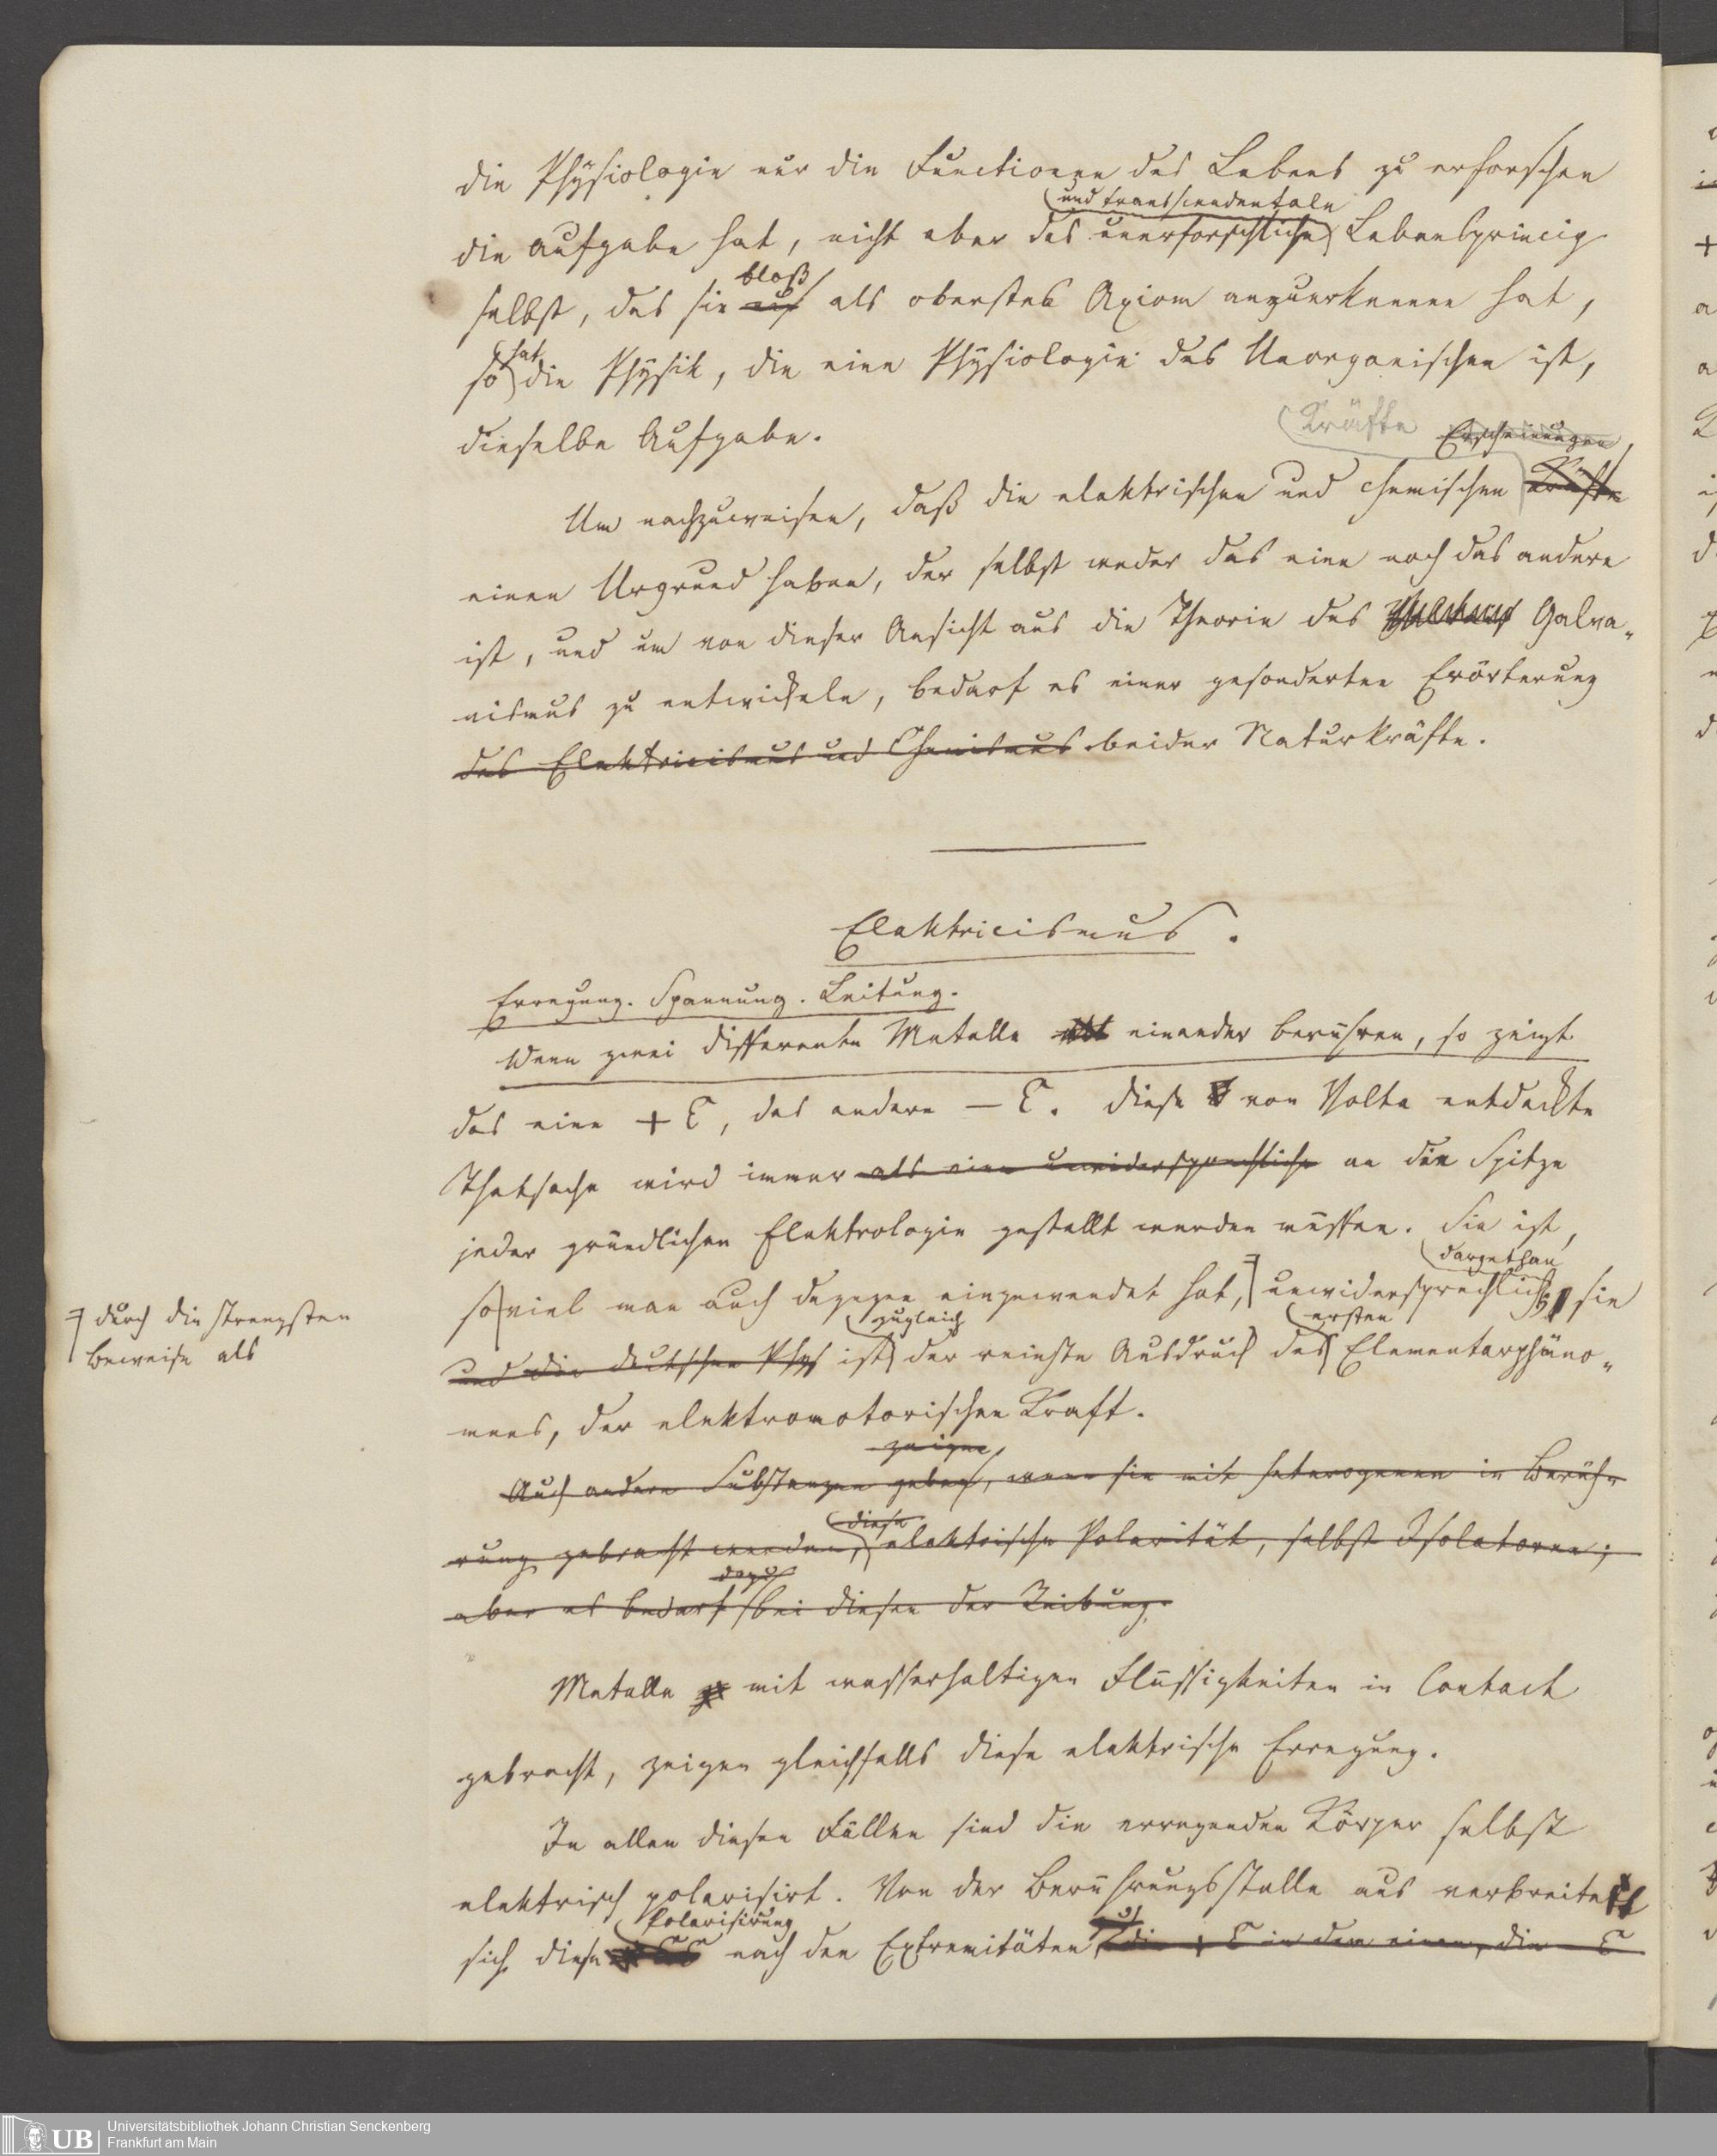 die Physiologie nur die Functionen des Lebens zu erforschen
und transscendentale
die Aufgabe hat, nicht aber das unerforschliche Lebensprincip
bloß
selbst, das sie als oberstes Axiom anzuerkennen hat,
hat
so die Physik, die eine Physiologie des Unorganischen ist,
dieselbe Aufgabe.
Kräfte Erscheinungen
Um nachzuweisen, daß die elektrischen und chemischen Kräfte
einen Urgrund haben, der selbst weder das eine noch das andere
ist, und um von dieser Ansicht aus die Theorie des Galva-
nismus zu entwickeln, bedarf es einer gesonderten Erörterung
des Elektricismus und Chemismus beider Naturkräfte.
Elektricismus.
Erregung. Spannung. Leitung.
Wenn zwei differente Metalle einander berühren, so zeigt
das eine + E, das andere — E. Diese von Volta entdeckte
Thatsache wird immer als eine unwidersprechliche an die Spitze
jeder gründlichen Elektrologie gestellt werden müssen. Sie ist,
dargethan
soviel man auch dagegen eingewendet hat, unwidersprechlich; sie
durch die strengsten
Beweise als
zugleich ersten
und die deutschen Phys ist der reinste Ausdruck des Elementarphäno-
mens, der elektromotorischen Kraft.
zeigen
Auch andere Substanzen geben, wenn sie mit heterogenen in Berüh-
diese
rung gebracht werden, elektrische Polarität, selbst Isolatoren;
dazu
aber es bedarf bei diesen der Reibung.
Metalle mit wasserhaltigen Flüssigkeiten in Contact
gebracht, zeigen gleichfalls diese elektrische Erregung.
In allen diesen Fällen sind die erregenden Körper selbst
elektrisch polarisirt. Von der Berührungsstelle aus verbreitet
Polarisirung
sich diese nach den Extremitäten, die + E in dem einen, die — E
UB
Universitätsbibliothek Johann Christian Senckenberg
Frankfurt am Main